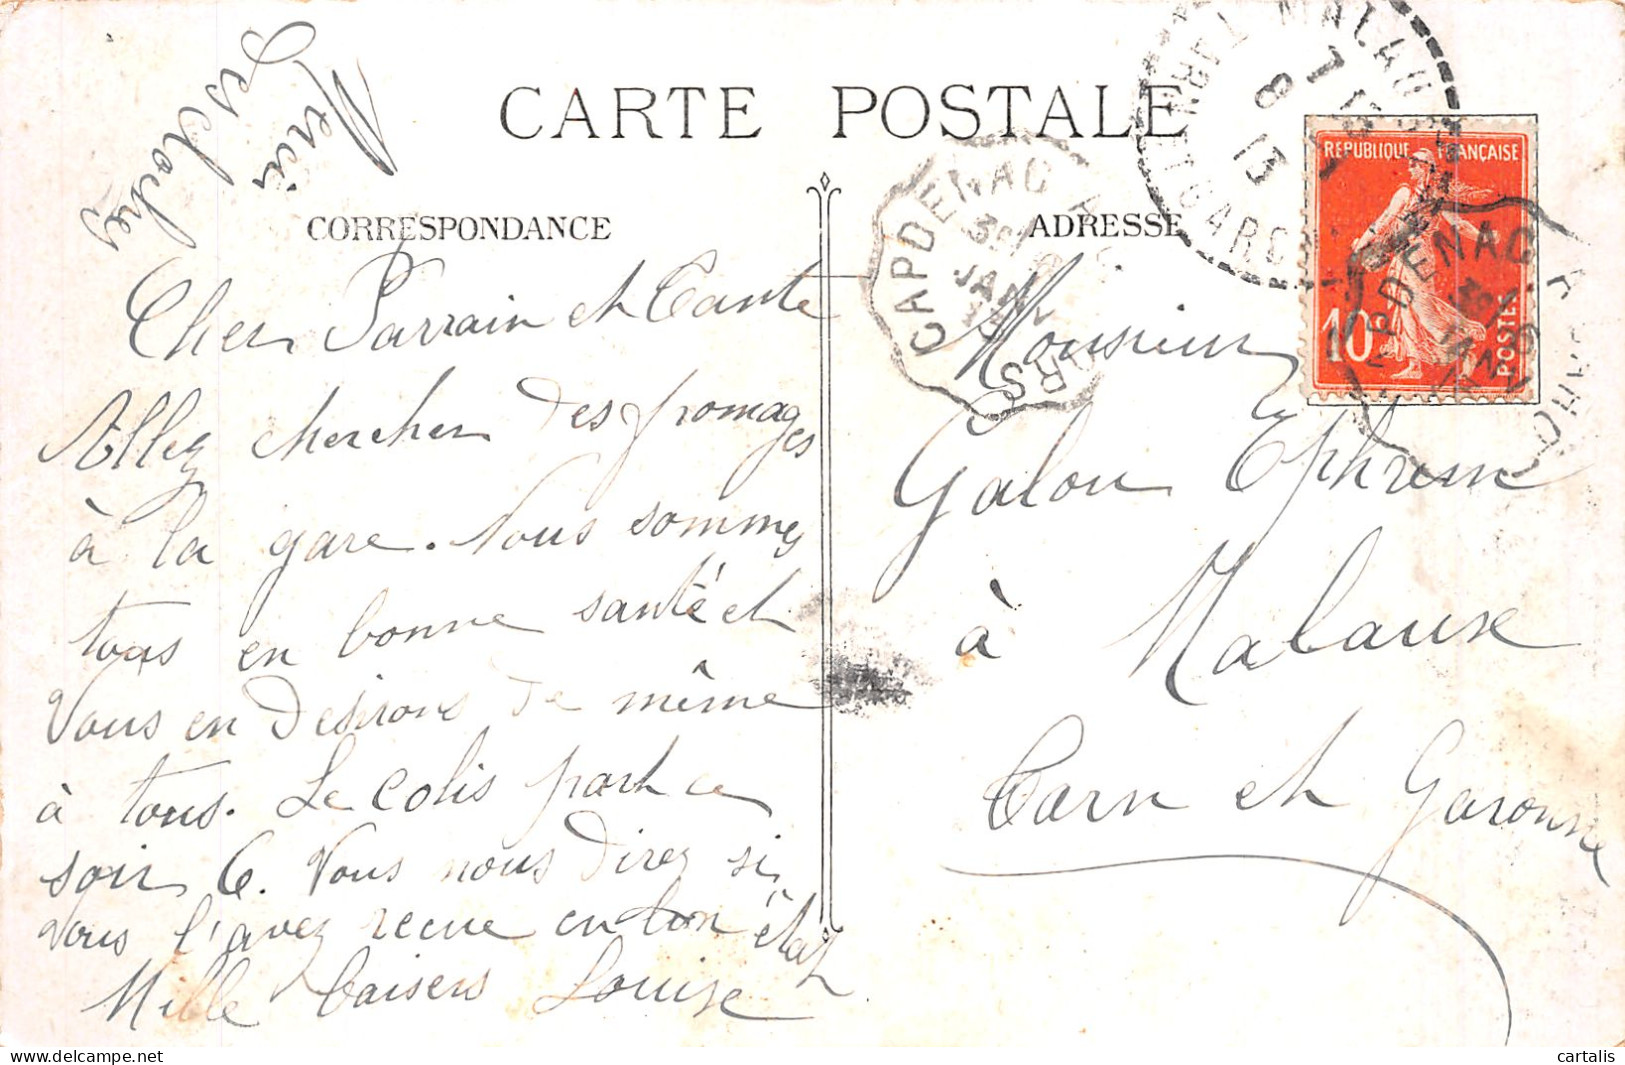 Merci
des cloches
CARTE POSTALE
CORRESPONDANCE
ADRESSE
Cher Parrain et Tante
Allez chercher des fromages
à la gare. Nous sommes
tous en bonne santé et
Vous en desirons de même
à tous. Le colis part ce
soir 6. Vous nous direz si
vous l'avez recue en bon état
Mille baisers Louise
Monsieur
Galou Ephrem
à Malause
Tarn et Garonne
REPUBLIQUE FRANÇAISE
10
POSTES
CAPDENAC A
JANV
CAPDENAC A
JANV
cartalis